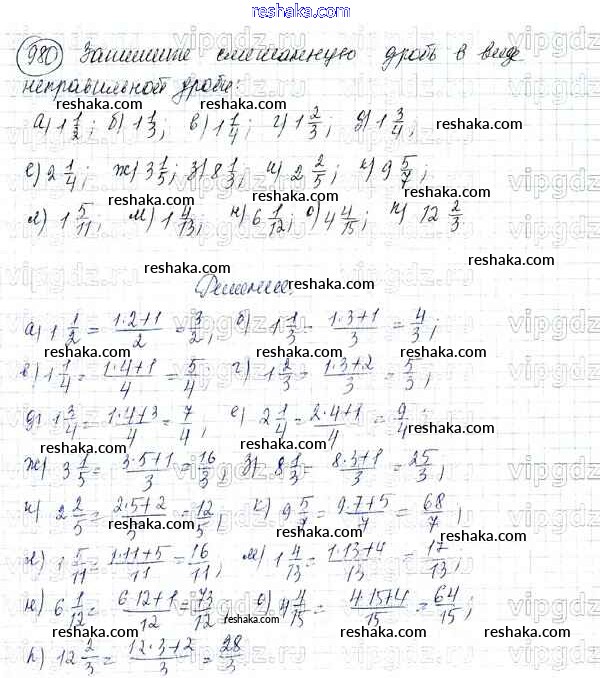 reshaka.com
980 Запишите смешанную дробь в виде
неправильной дроби:
а) 1 1/2; б) 1 1/3; в) 1 1/4; г) 1 2/3; д) 1 3/4,
е) 2 1/4; ж) 3 1/5; з) 8 1/3; и) 2 2/5; к) 9 5/7;
л) 1 5/11; м) 1 4/13; н) 6 1/12; о) 4 4/15; п) 12 2/3
Решение:
а) 1 1/2 = 1·2+1/2 = 3/2; б) 1 1/3 = 1·3+1/3 = 4/3;
в) 1 1/4 = 1·4+1/4 = 5/4 г) 1 2/3 = 1·3+2/3 = 5/3;
д) 1 3/4 = 1·4+3/4 = 7/4, е) 2 1/4 = 2·4+1/4 = 9/4
ж) 3 1/5 = 3·5+1/3 = 16/3, з) 8 1/3 = 8·3+1/3 = 25/3
и) 2 2/5 = 2·5+2/5 = 12/5, к) 9 5/7 = 9·7+5/7 = 68/7,
л) 1 5/11 = 1·11+5/11 = 16/11, м) 1 4/13 = 1·13+4/13 = 17/13,
н) 6 1/12 = 6·12+1/12 = 73/12 о) 4 4/15 = 4·15+4/15 = 64/15;
п) 12 2/3 = 12·3+2/3 = 28/3